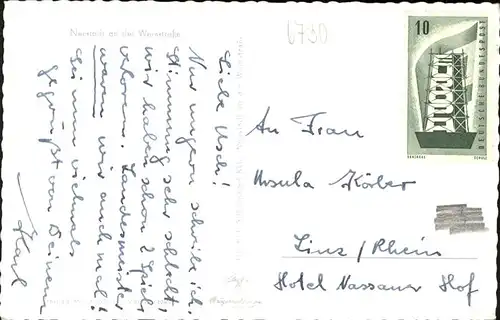 Neuerath an der Weinstraße
6730
Liebe Usch!
Nur ungern schreibe ich.
Stimmung sehr schlecht,
wir haben schon 2 Spiele
verloren. Landesmeister
waren wir auch mal!
Sei nun vielmals
gegrüßt von Deinem
Karl
10
DEUTSCHE BUNDESPOST
An Frau
Ursula Körber
Linz / Rhein
Hotel Nassauer Hof